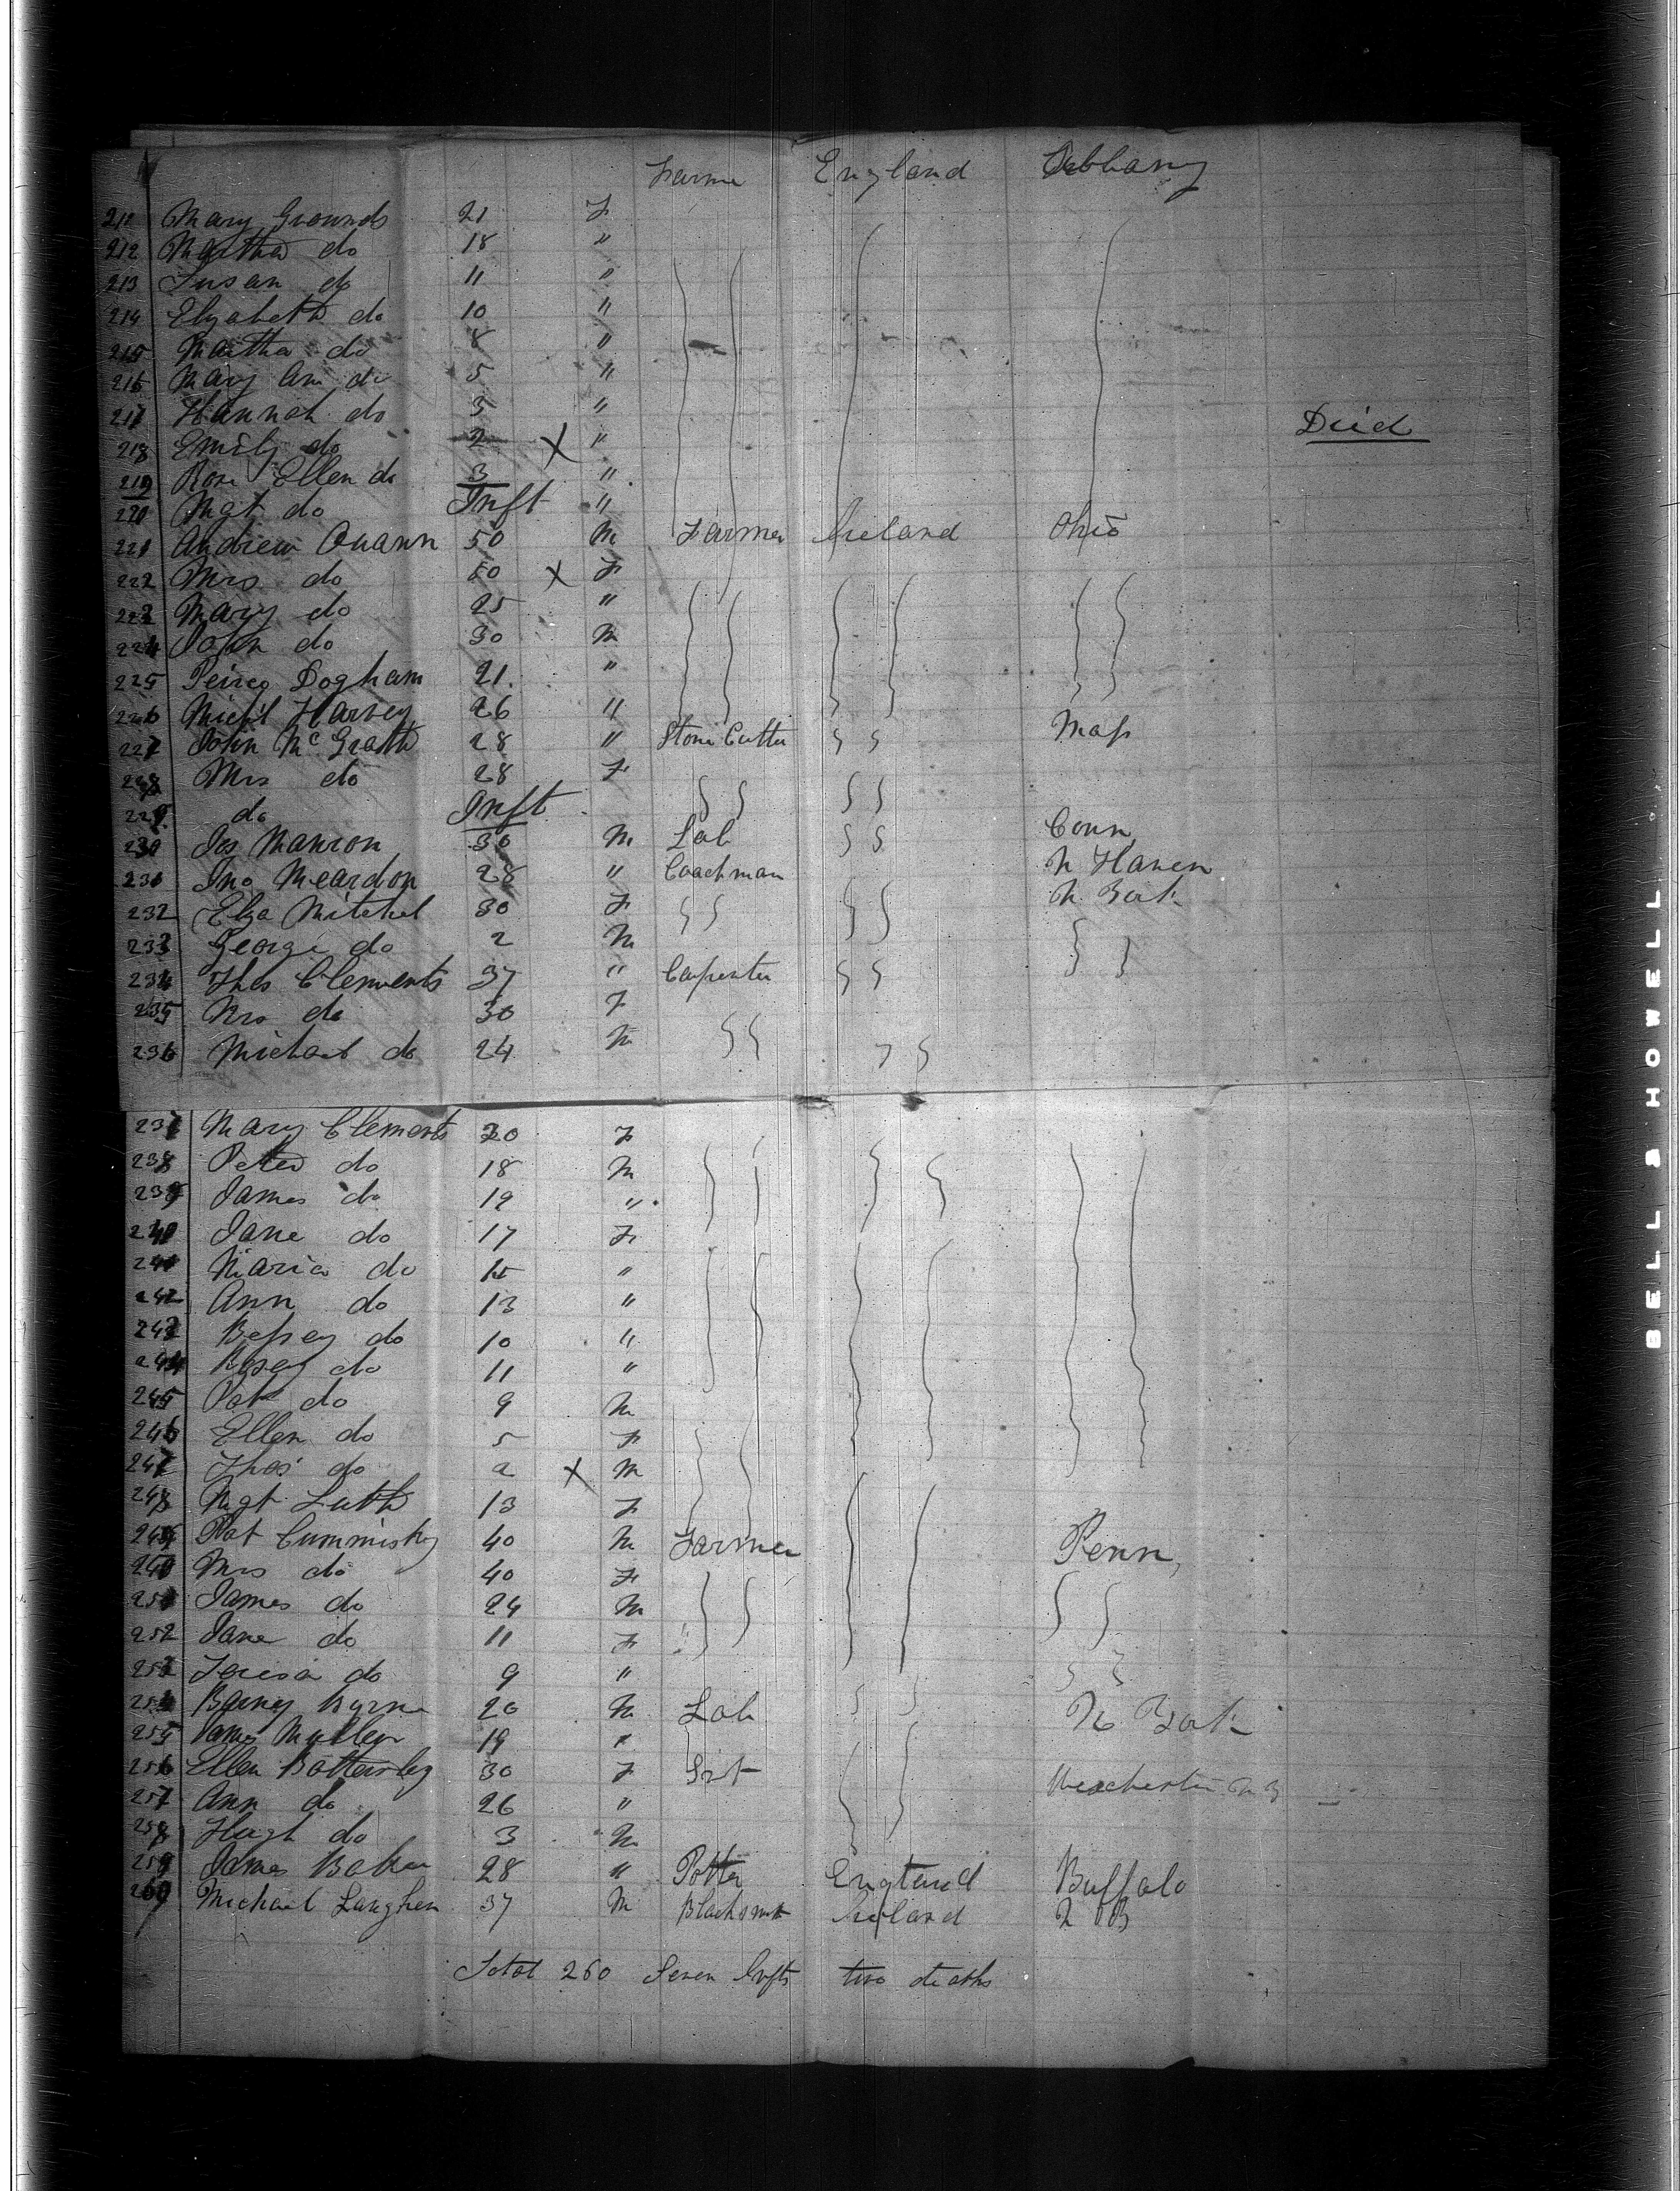 Farmer England Albany
211 Mary Grounds 21 F
212 Martha do 18 "
213 Susan do 11 "
214 Elizabeth do 10 "
215 Martha do 8 "
216 Mary Ann do 5 "
217 Hannah do 3 "
218 Emily do 2 X " Died
219 Rose Ellen do 3 "
220 Mgt do Inft "
221 Andrew Quann 50 M Farmer Ireland Ohio
222 Mrs do 50 X F
223 Mary do 25 "
224 John do 30 M
225 Peirce Dogham 21 "
226 Michl Harvey 26 "
227 John McGrath 28 " Stone Cutter Mass
228 Mrs do 28 F
229 do Inft
230 Jas Manron 30 M Lab Conn
231 Jno Meardon 28 " Coachman N Haven
232 Elza Mitchel 30 F N. York
233 George do 2 M
234 Thos Clements 37 " Carpenter
235 Mrs do 30 F
236 Michael do 24 M
237 Mary Clements 20 F
238 Peter do 18 M
239 James do 19 "
240 Jane do 17 F
241 Maria do 15 "
242 Ann do 13 "
243 Bessey do 10 "
244 Rosey do 11 "
245 Pat do 9 M
246 Ellen do 5 F
247 Thos do 2 X M
248 Mgt 13 F
249 Pat Cummisky 40 M Farmer Penn,
250 Mrs do 40 F
251 James do 24 M
252 Jane do 11 F
253 Teresa do 9 "
254 Barney Byrne 20 M Lab N York
255 James Mullen 19 "
256 Ellen Battersby 30 F
257 Ann do 26 "
258 Hugh do 3 M
259 James Baker 28 " Potter England Buffalo
260 Michael Langhen 37 M Blacksmt Ireland
Total 260 Seven Infts two deaths
BELL & HOWELL